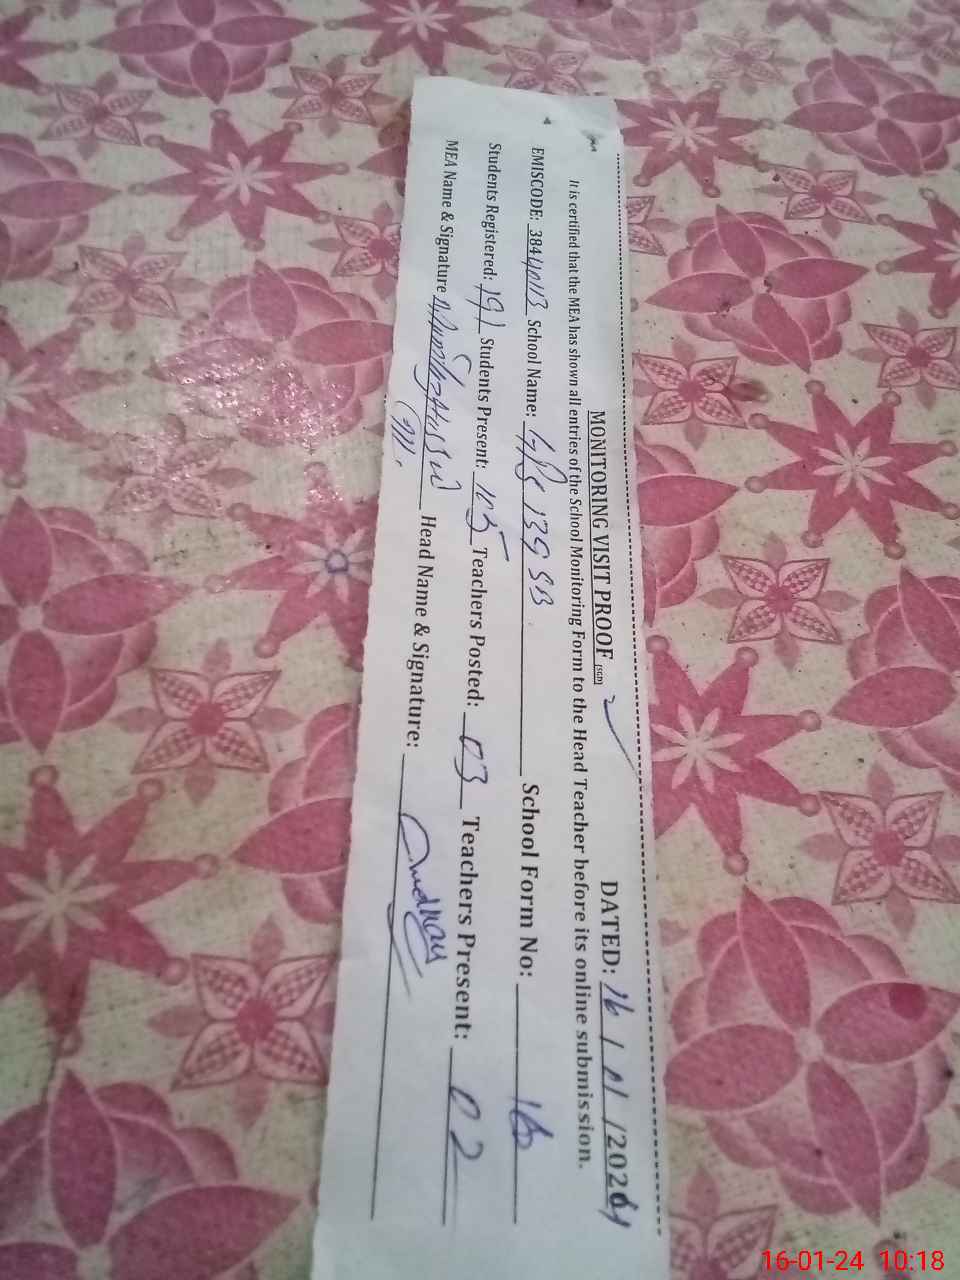 MONITORING VISIT PROOF (SGD) DATED: 16 / 01 /2024
It is certified that the MEA has shown all entries of the School Monitoring Form to the Head Teacher before its online submission.
EMISCODE: 38440113 School Name: GPS 139 SB School Form No: 16
Students Registered: 191 Students Present: 105 Teachers Posted: 03 Teachers Present: 02
MEA Name & Signature Head Name & Signature:
16-01-24 10:18